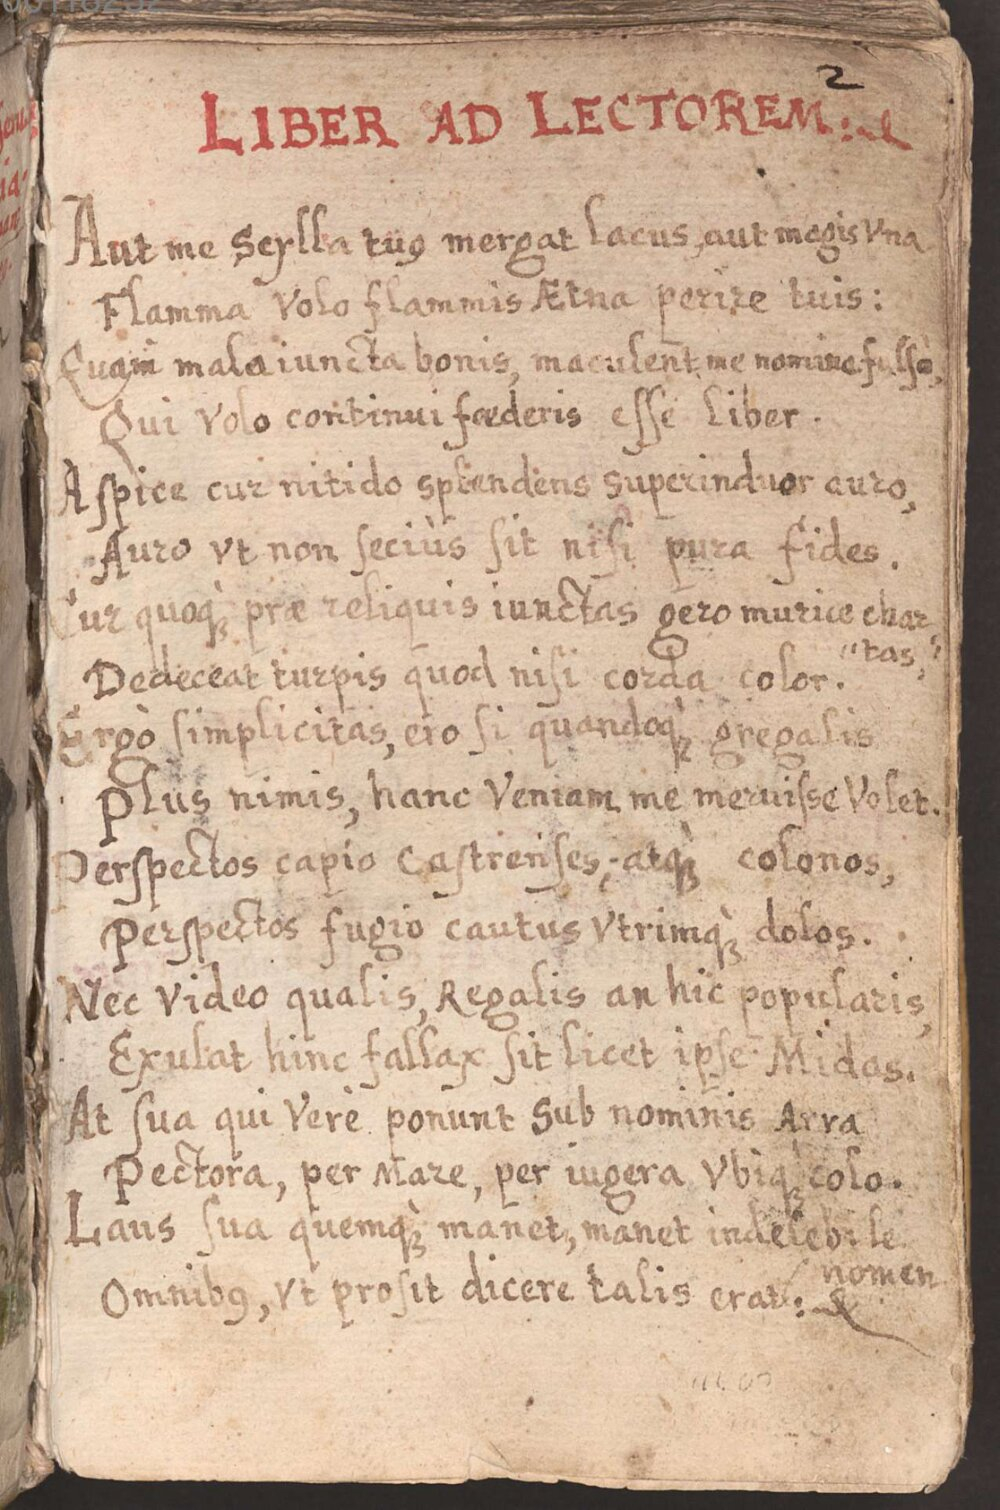 2
LIBER AD LECTOREM:
Aut me Scylla tuꝰ mergat lacus, aut magis Vna
Flamma Volo flammis Ætna perire tuis:
Quam̀ mala iuncta bonis, maculent me nomina falsa,
Qui Volo continui fœderis esse Liber.
Aspice cur nitido splendens superinduor auro,
Auro vt non seciùs sit nisi pura fides.
Cur quoq̀ꝫ præ reliquis iunctas gero murice char-
"tas,?
Dedeceat turpis quod nisi corda color.
Ergò simplicitas, ero si quandoq̀ꝫ gregalis
Plus nimis, hanc Veniam me meruisse Volet.
Perspectos capio Castrenses, atq̀ꝫ colonos,
Perspectos fugio cautus Vtrimq̀ꝫ dolos.
Nec Video qualis, Regalis an hic popularis,
Exulat hinc fallax sit licet ipse Midas.
At sua qui Verè ponunt Sub nominis Arra
Pectora, per Mare, per iugera Vbiq̀ꝫ colo.
Laus sua quemq̀ꝫ manet, manet indelebile
nomen
Omnibꝰ, Vt prosit dicere talis erat: